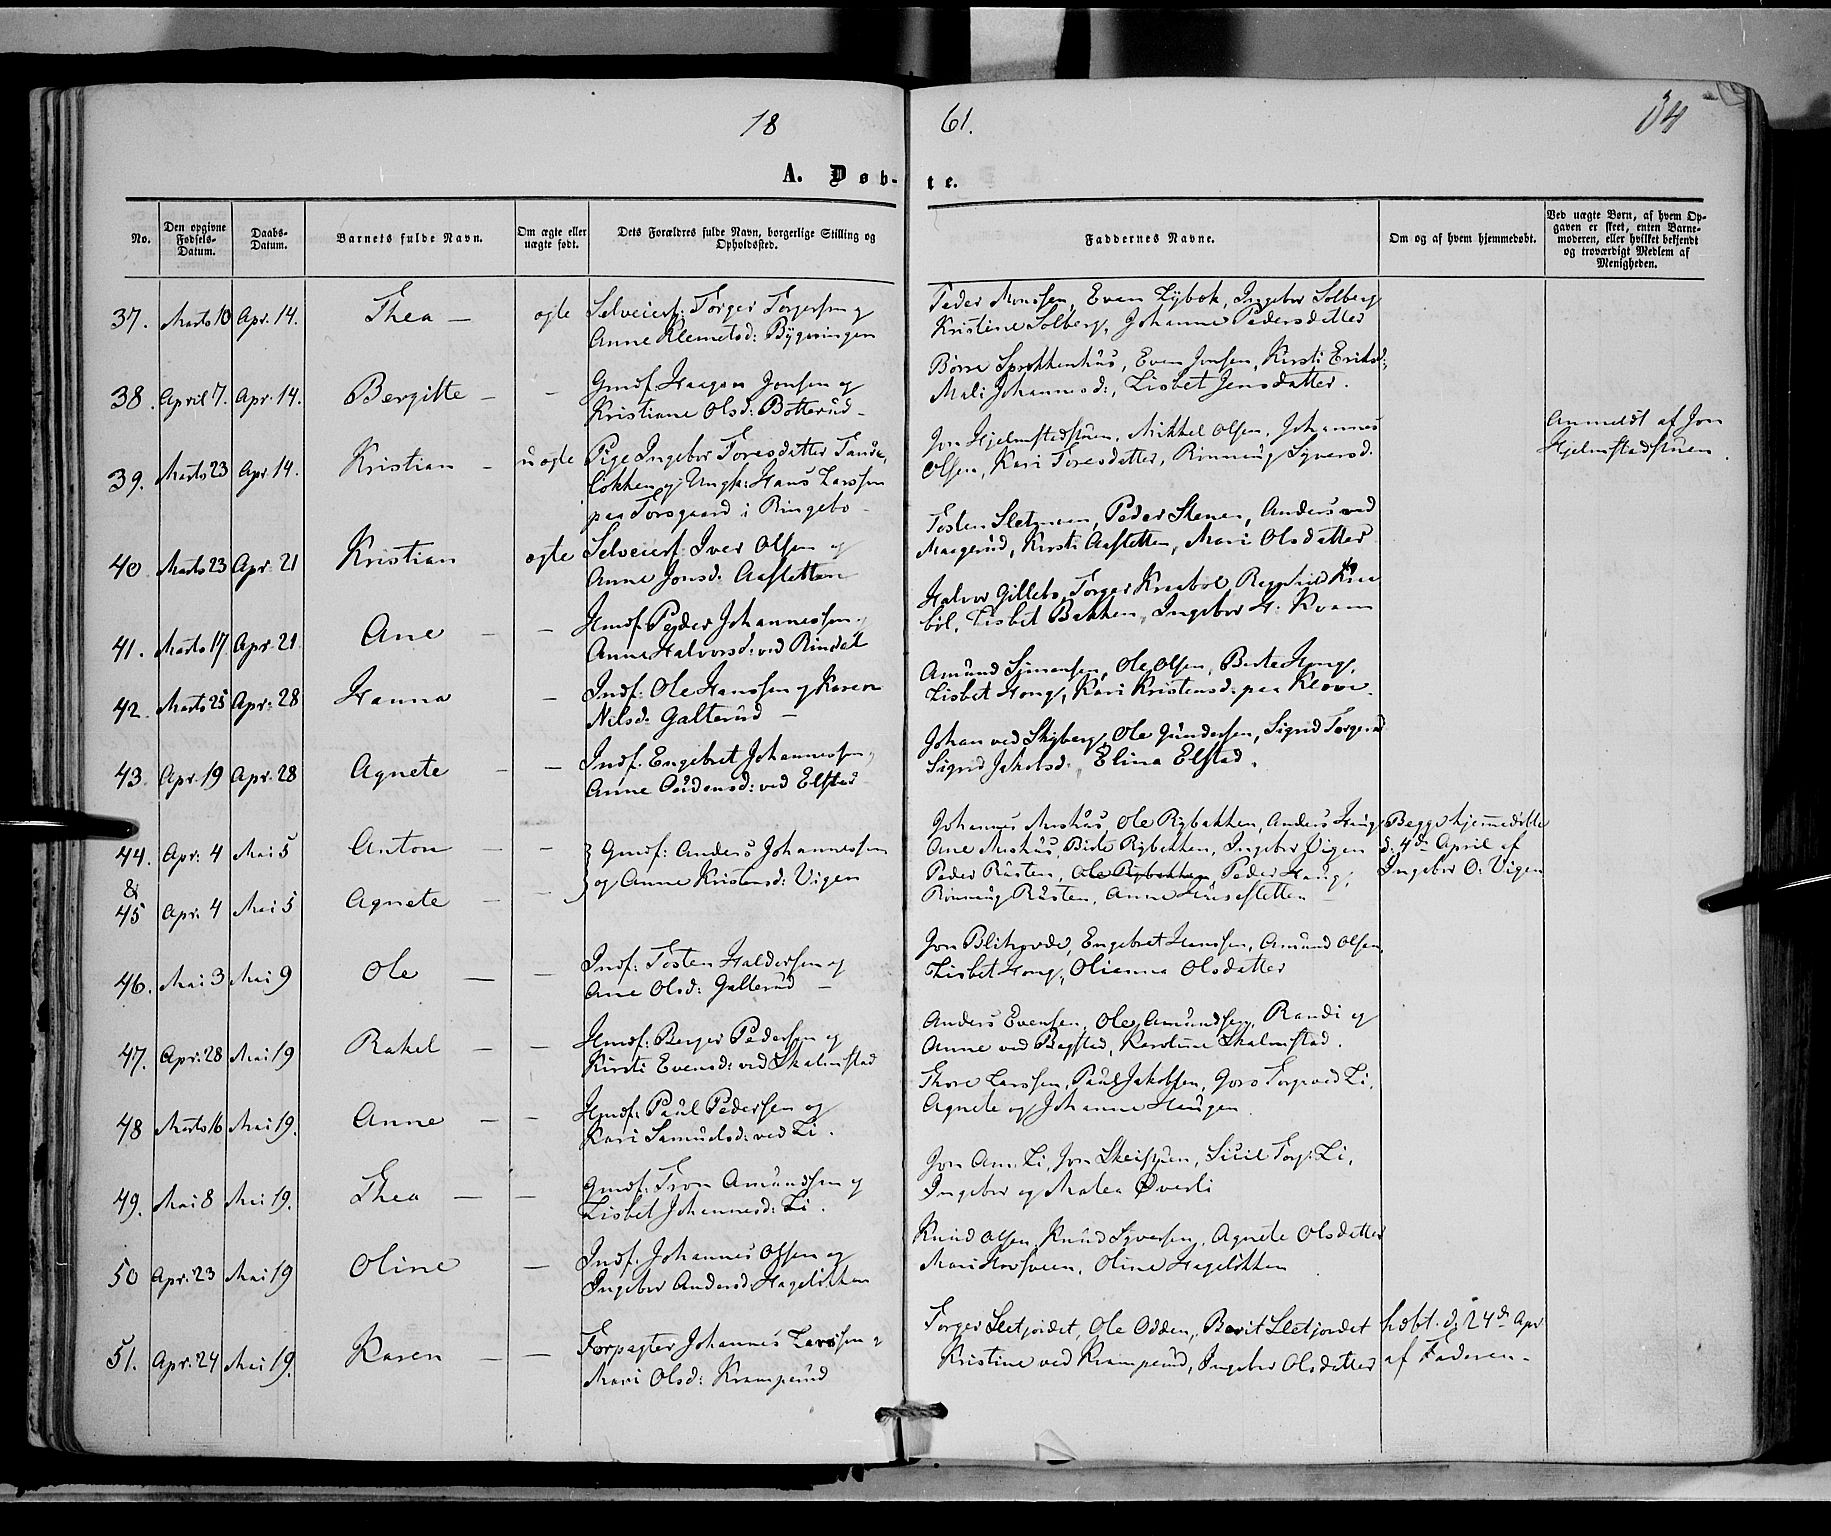 18 61. 34
A. Døb- te.
No.
Den opgivne Fødsels-Datum.
Daabs-Datum.
Barnets fulde Navn.
Om ægte eller uægte født.
Dets Forældres fulde Navn, borgerlige Stilling og Opholdssted.
Faddernes Navne.
Om og af hvem hjemmedøbt.
Ved uægte Børn, af hvem Opgaven er skeet, enten Barnemoderen, eller hvilket bekjendt og troværdigt Medlem af Menigheden.
37. Marts 10 Apr. 14. Thea — ægte Selveierf: Torger Torgersen og
Anne Klemetsd:
Peder Monssen, Even Lybek, Ingebor Solberg
Kristine Solberg, Johanne Pedersdatter
38. April 7. Apr. 14. Bergitte — — Gmdf. Haagen Jonsen og
Kristiane Olsd: Botterud —
Børre Sprekkenhus, Even Jonsen, Kirsti Eriksd:
Mali Johannesd:, Lisbet Jensdatter.
39. Marts 23 Apr. 14. Kristian — uægte Pige Ingebor Toresdatter
Løkken og Ungk: Hans Larssen
paa Forsgaard i Ringebo —
Jon Hjelmstadstuen, Mikkel Olsen, Johannes
Olsen, Kari Toresdatter, Rønnaug Syversd.
Anmeldt af Jon
Hjelmstadstuen.
40. Marts 23 Apr. 21 Kristian ægte Selveierf: Iver Olsen og
Anne Jonsd: Aasletten
Tosten Sletmoen, Peder Stenen, Anders ved
Maagerud, Kirsti Aasletten, Mari Olsdatter
41. Marts 17 Apr. 21 Ane — — Hmdf. Peder Johannessen og
Anne Halvorsd: ved Rindal
Halvor Gillebo, Torger Kraabøl, Ragnhild Kraa
bøl, Lisbet Bakken, Ingebor H. Kvam
42. Marts 25 Apr: 28 Hanna — Indf: Ole Hanssen og Karen
Nilsd: Galterud —
Amund Simensen, Ole Olsen, Berte Hong,
Lisbet Hong, Kari Kristensd: paa Klove.
43. Apr. 19 Apr. 28 Agnete — — Indf. Engebret Johannessen og
Anne Audensd: ved Elstad
Johan ved Skyberg, Ole Gundersen, Sigrid Torgersd
Sigrid Jakobsd:, Elina Elstad.
44. Apr: 4 Mai 5 Anton — — } Gmdf: Anders Johannessen
& 45 Apr: 4 Mai 5 Agnete — — og Anne Kristensd: Vigen
Johannes Aushus, Ole Rybakken, Anders Haug,
Ane Aushus, Birte Rybakken, Ingebor Vigen
Peder Rusten, Ole Rybakken Peder Haug,
Rønnaug Rusten, Anne Husesletten —
Begge hjemmedøbte
d: 4de April af
Ingebor O. Vigen
46. Mai 3 Mai 9 Ole — — Indf: Tosten Haldorsen og
Ane Olsd: Galterud —
Jon Engebret Hanssen, Amund Olsen,
Lisbet Hong, Olianna Olsdatter
47. Apr: 28 Mai 19 Rakel — — Hmdf: Berger Pedersen og
Kirsti Evensd: ved Skalmstad
Anders Evensen, Ole Amundsen, Randi og
Anne ved Bøgstad, Karoline Skalmstad.
48 Marts 16 Mai 19. Anne — — Hmdf: Paul Pedersen og
Kari Samuelsd: ved Li.
Thore Larssen, Paul Jakobsen, Goro Torp ved Li,
Agnete og Johanne Haugen.
49. Mai 8 Mai 19. Thea — — Gmdf: Tron Amundsen og
Lisbet Johannesd: Li.
Jon Am. Li, Jon Skeistuen, Siril Torp: Li,
Ingebor og Malea Øverli
50 Apr: 23 Mai 19 Oline — Indf: Johannes Olsen og
Ingebor Andersd: Hageløkken
Knud Olsen, Knud Syversen, Agnete Olsdatter
Mari Oline Hageløkken
51. Apr: 24 Mai 19. Karen — — Forpagter Johannes Larssen og
Mari Olsd: Krampenud
Torger Sletjordet, Ole Odden, Berit Sletjordet
Kristine ved Krampenud, Ingebor Olsdatter
hdbt. d: 24de Apr
af Faderen —